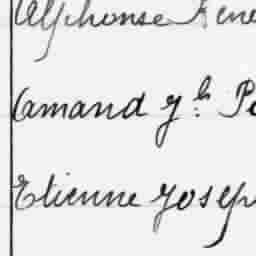 Alphonse René
Camand gh: Pe
Etienne Joseph